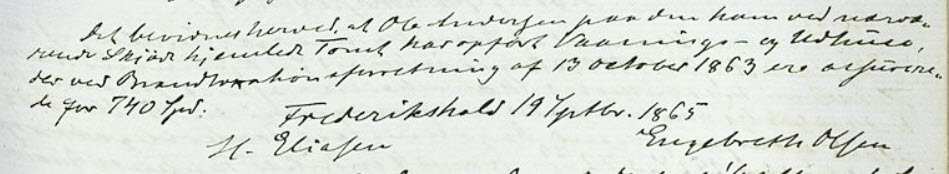 Det bevidnes herved, at Ole Andersen paa den ham ved nærvæ-
rende Skjøde hjemlede Tomt har opført Vaanings- og Udhuse,
der ved Brandtaxationsforretning af 13 October 1863 ere assurere-
de for 740 Spd.
Frederikshald 19 Septbr. 1865
H. Eliasen
Engebreth Olsen